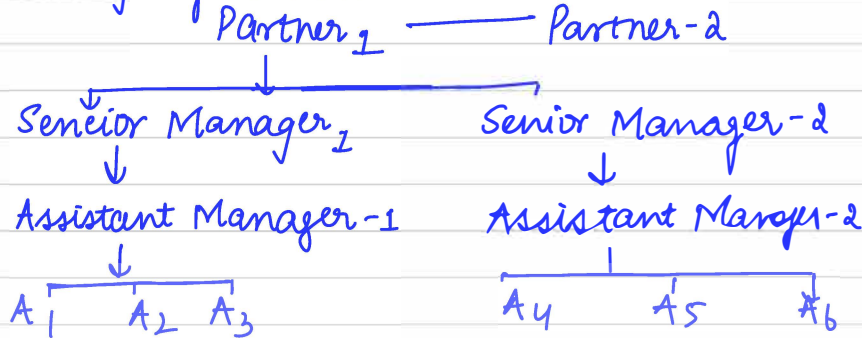 Partner 1 Partner-2
Seneior Manager 1 Senior Manager-2
Assistant Manager-1 Assistant Manager-2
A1 A2 A3 A4 A5 A6